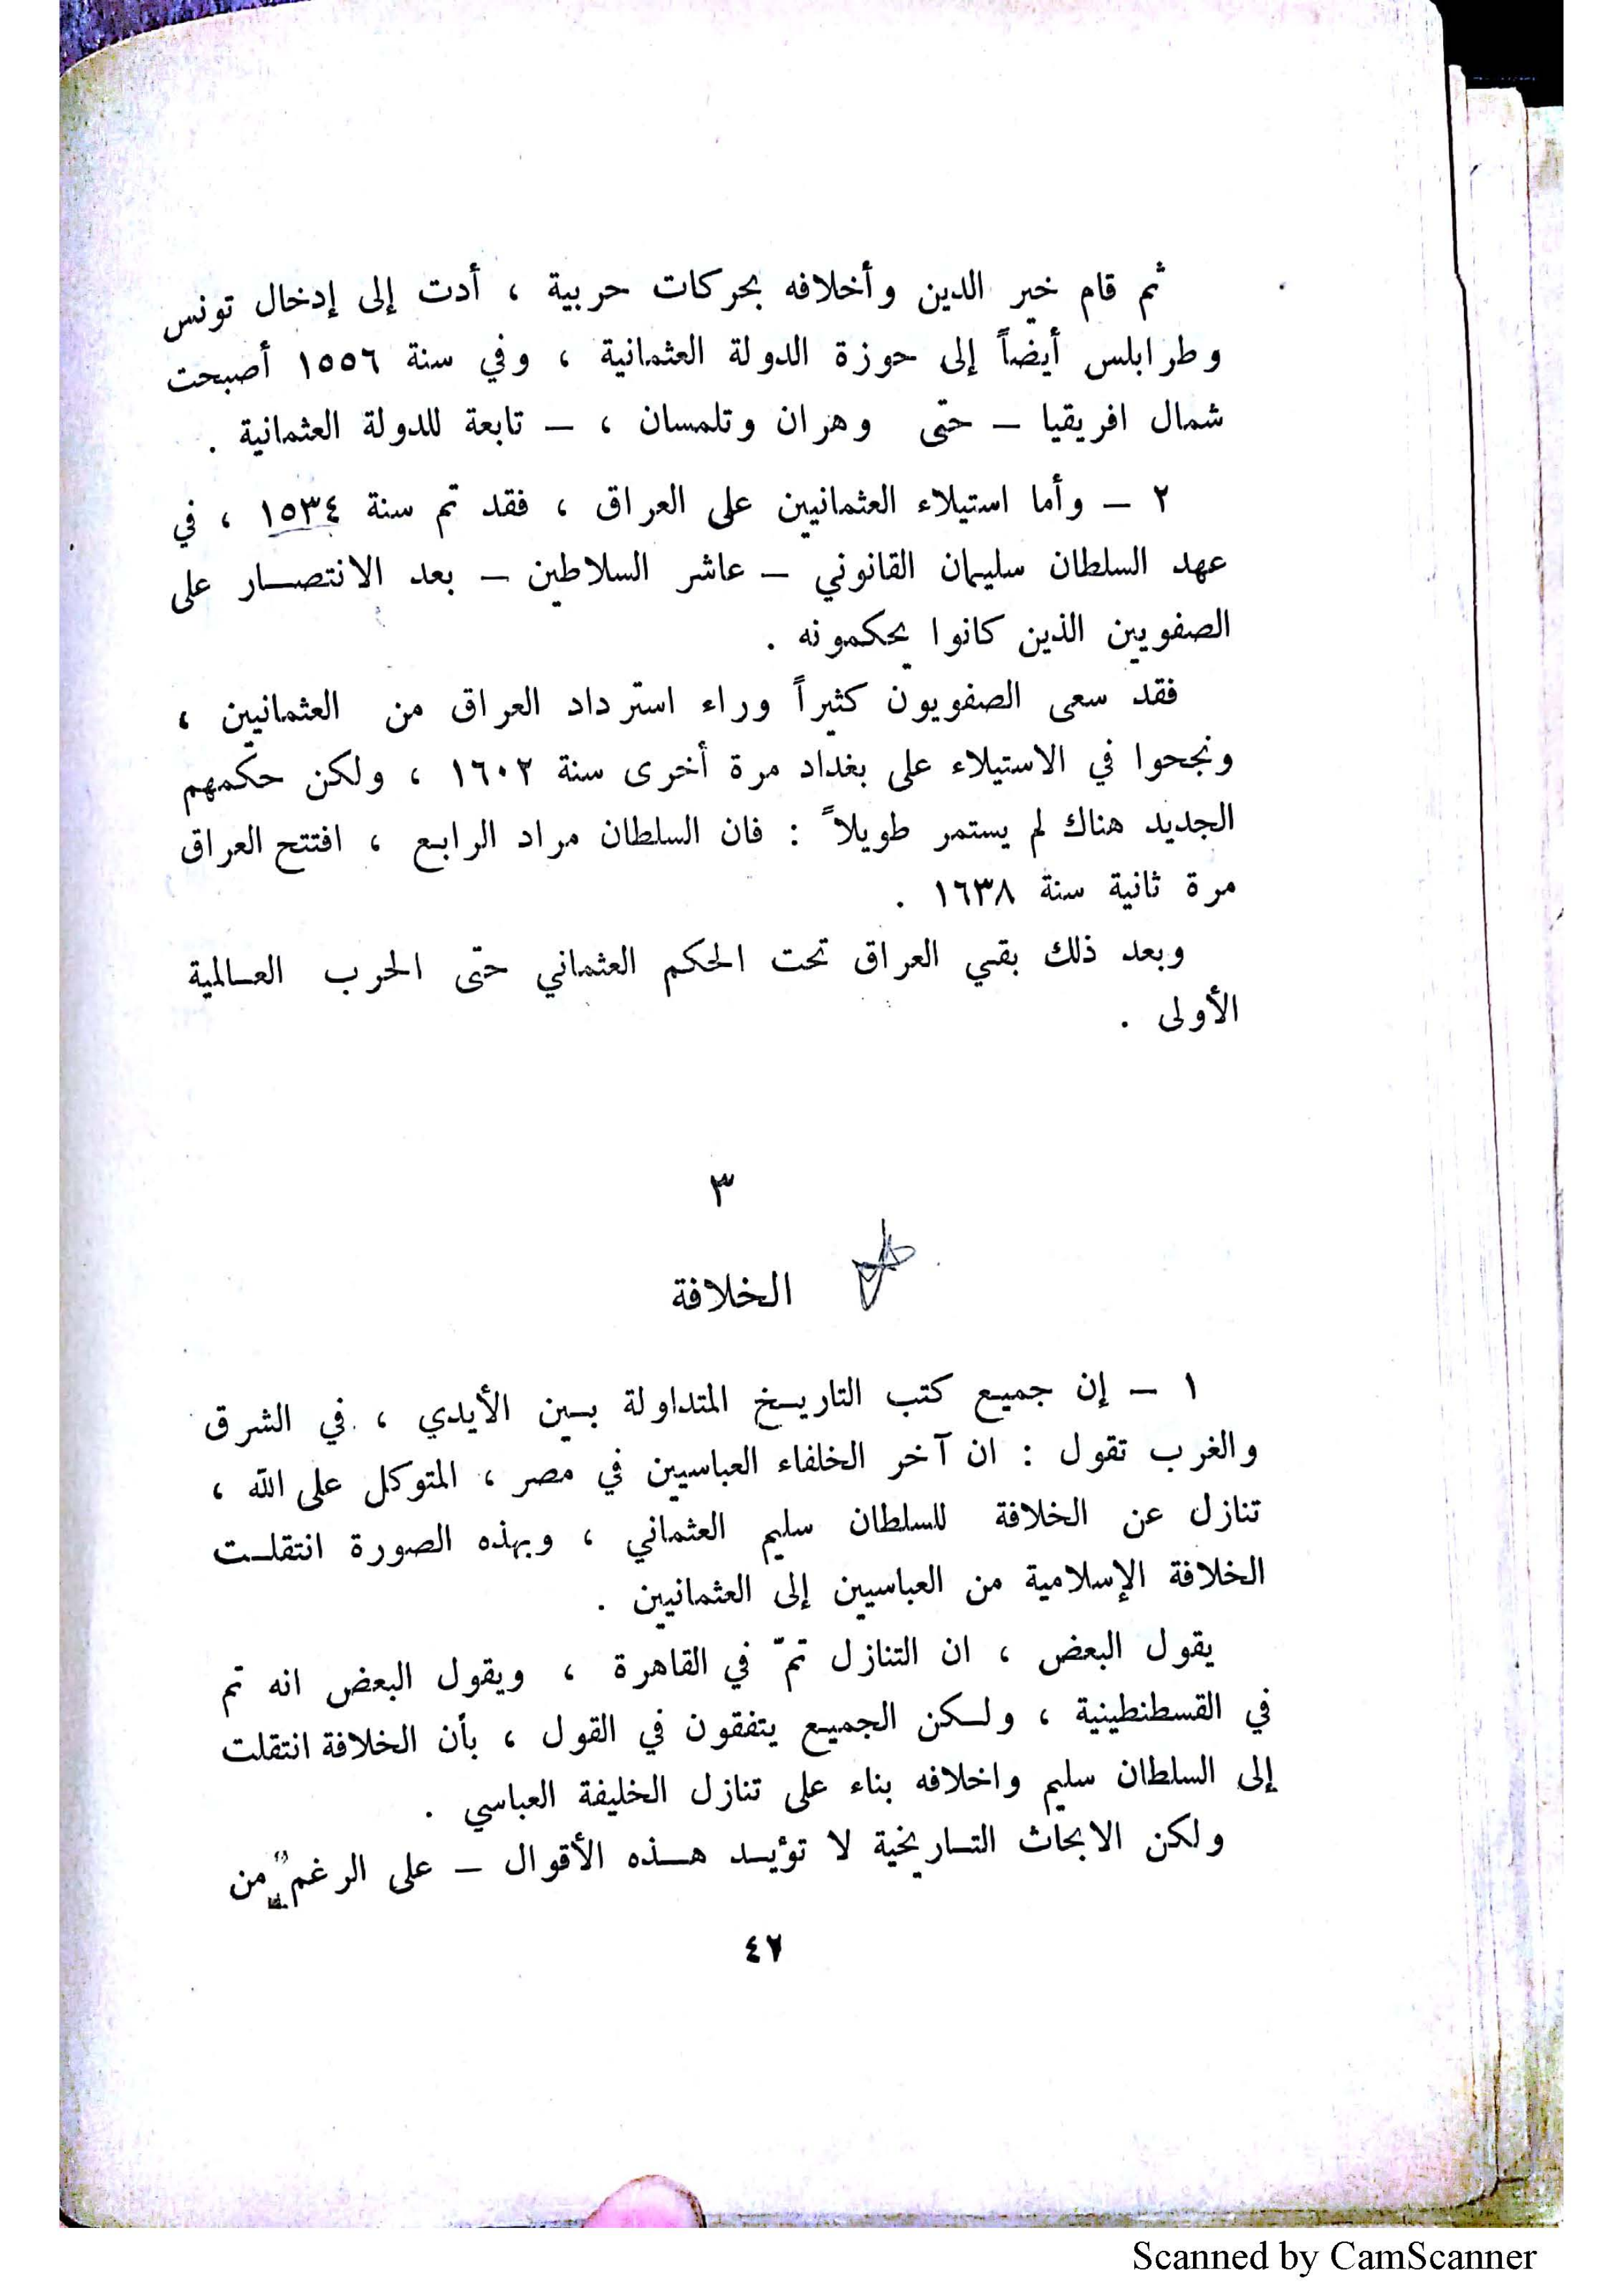 ثم قام خير الدين وأخلافه بحركات حربية ، أدت إلى إدخال تونس
وطرابلس أيضاً إلى حوزة الدولة العثمانية ، وفي سنة ١٥٥٦ أصبحت
شمال افريقيا – حتى وهران وتلمسان ، – تابعة للدولة العثمانية .
٢ – وأما استيلاء العثمانيين على العراق ، فقد تم سنة ١٥٣٤ ، في
عهد السلطان سليمان القانوني – عاشر السلاطين – بعد الانتصار على
الصفويين الذين كانوا يحكمونه .
فقد سعى الصفويون كثيراً وراء استرداد العراق من العثمانيين ،
ونجحوا في الاستيلاء على بغداد مرة أخرى سنة ١٦٠٢ ، ولكن حكمهم
الجديد هناك لم يستمر طويلاً : فان السلطان مراد الرابع ، افتتح العراق
مرة ثانية سنة ١٦٣٨ .
وبعد ذلك بقي العراق تحت الحكم العثماني حتى الحرب العالمية
الأولى .
٣
الخلافة
١ – إن جميع كتب التاريخ المتداولة بين الأيدي ، في الشرق
والغرب تقول : ان آخر الخلفاء العباسيين في مصر ، المتوكل على الله ،
تنازل عن الخلافة للسلطان سليم العثماني ، وبهذه الصورة انتقلت
الخلافة الإسلامية من العباسيين إلى العثمانيين .
يقول البعض ، ان التنازل تمّ في القاهرة ، ويقول البعض انه تم
في القسطنطينية ، ولكن الجميع يتفقون في القول ، بأن الخلافة انتقلت
إلى السلطان سليم واخلافه بناء على تنازل الخليفة العباسي .
ولكن الابحاث التاريخية لا تؤيد هذه الأقوال – على الرغم من
٤٢
Scanned by CamScanner